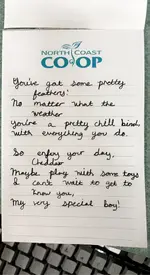 NORTH COAST
CO-OP
You've got some pretty
feathers!
No matter what the
weather
you're a pretty chill bird
with everything you do.
So enjoy your day,
Cheddar
Maybe play with some toys
I can't wait to get to
know you,
My very special boy!